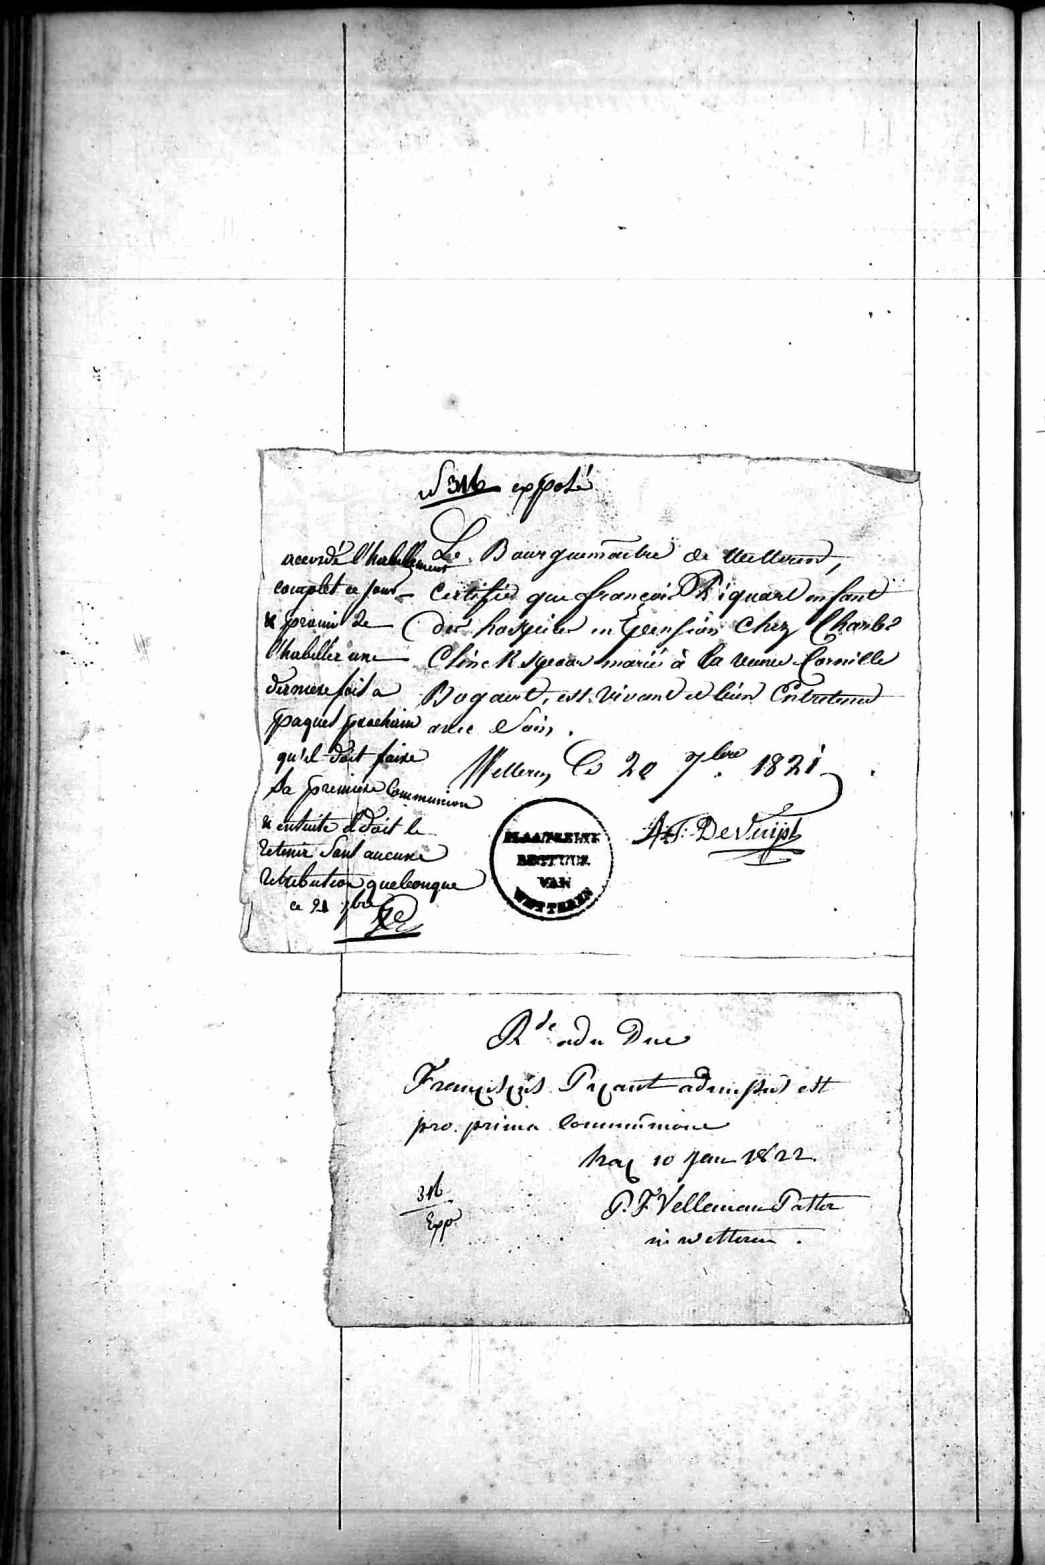 N 316 exposé
Le Bourguemaitre de Wetteren,
certifie que françois Piquart enfant
des hospices en pension chez Charles
Clinckspoor marié à la veuve Corneille
Bogaert, est vivant et bien Entretenu
avec Soin.
Wetteren Le 20 7bre 1821
A.F. De Vuijst
accordé l'habillement
complet ce jour
& promis de
l'habiller une
derniere fois a
paques prochain
qu'il doit faire
Sa premiere Communion
& ensuite il doit le
retenir Sans aucune
retribution quelconque
ce 21 7bre
PLAATSELYK
BESTUUR
VAN
WETTEREN
Rde adm Dne
Franciscus Picant admissus est
pro prima communione
hac 10 Jan 1822
P. F. Velleman Pastor
in wetteren.
316
Exp